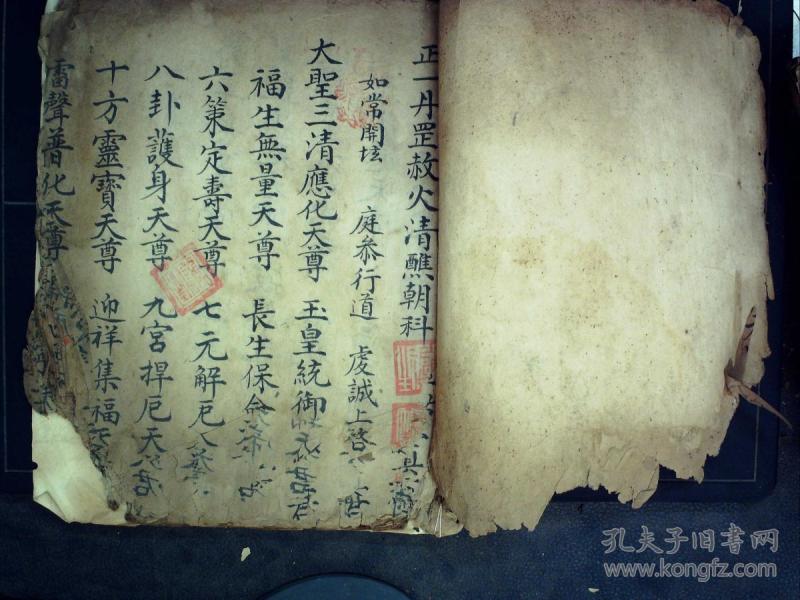 正一丹罡赦火清醮朝科
如常開壇 庭叅行道 虔誠上啓
大聖三清應化天尊 玉皇統御
福生無量天尊 長生保命
六策定壽天尊 七元解厄
八卦護身天尊 九宮捍厄天
十方靈寶天尊 迎祥集福
雷聲普化天尊
孔夫子旧书网
www.kongfz.com